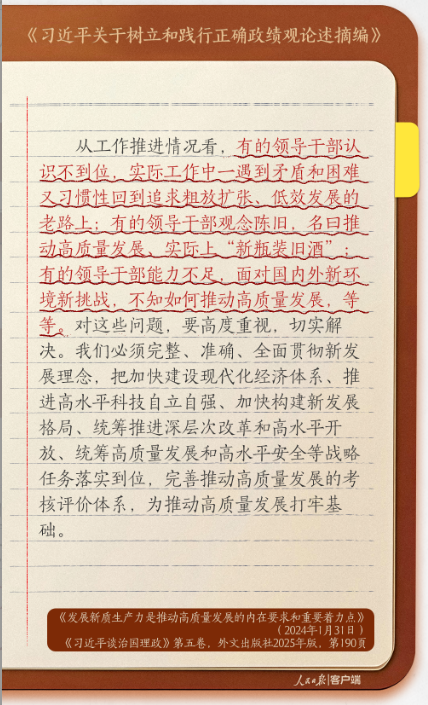 《习近平关于树立和践行正确政绩观论述摘编》
从工作推进情况看，有的领导干部认
识不到位，实际工作中一遇到矛盾和困难
又习惯性回到追求粗放扩张、低效发展的
老路上；有的领导干部观念陈旧，名曰推
动高质量发展、实际上“新瓶装旧酒”；
有的领导干部能力不足，面对国内外新环
境新挑战，不知如何推动高质量发展，等
等。对这些问题，要高度重视，切实解
决。我们必须完整、准确、全面贯彻新发
展理念，把加快建设现代化经济体系、推
进高水平科技自立自强、加快构建新发展
格局、统筹推进深层次改革和高水平开
放、统筹高质量发展和高水平安全等战略
任务落实到位，完善推动高质量发展的考
核评价体系，为推动高质量发展打牢基
础。
《发展新质生产力是推动高质量发展的内在要求和重要着力点》
（2024年1月31日）
《习近平谈治国理政》第五卷，外文出版社2025年版，第190页
人民日报|客户端